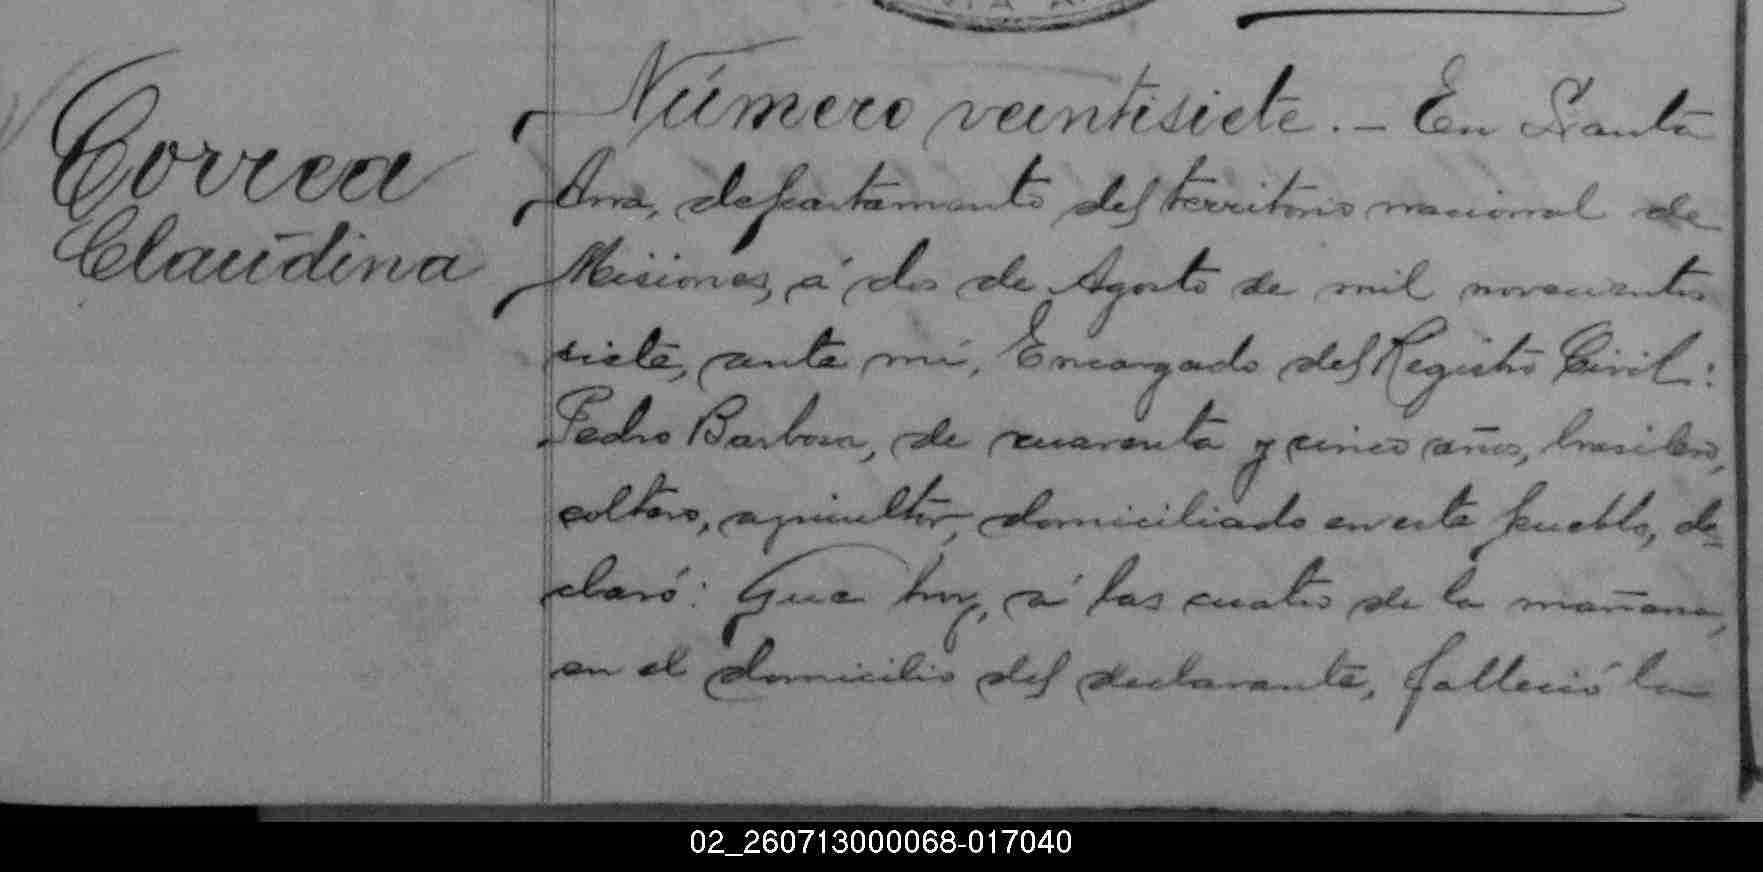 Correa
Claudina
Número veintisiete. — En Santa
Ana, departamento del territorio nacional de
Misiones, á dos de Agosto de mil novecientos
siete, ante mí, Encargado del Registro Civil:
Pedro Barbosa, de cuarenta y cinco años, brasilero,
soltero, agricultor, domiciliado en este pueblo, de-
claró: Que hoy, á las cuatro de la mañana,
en el domicilio del declarante, falleció la
02_260713000068-017040